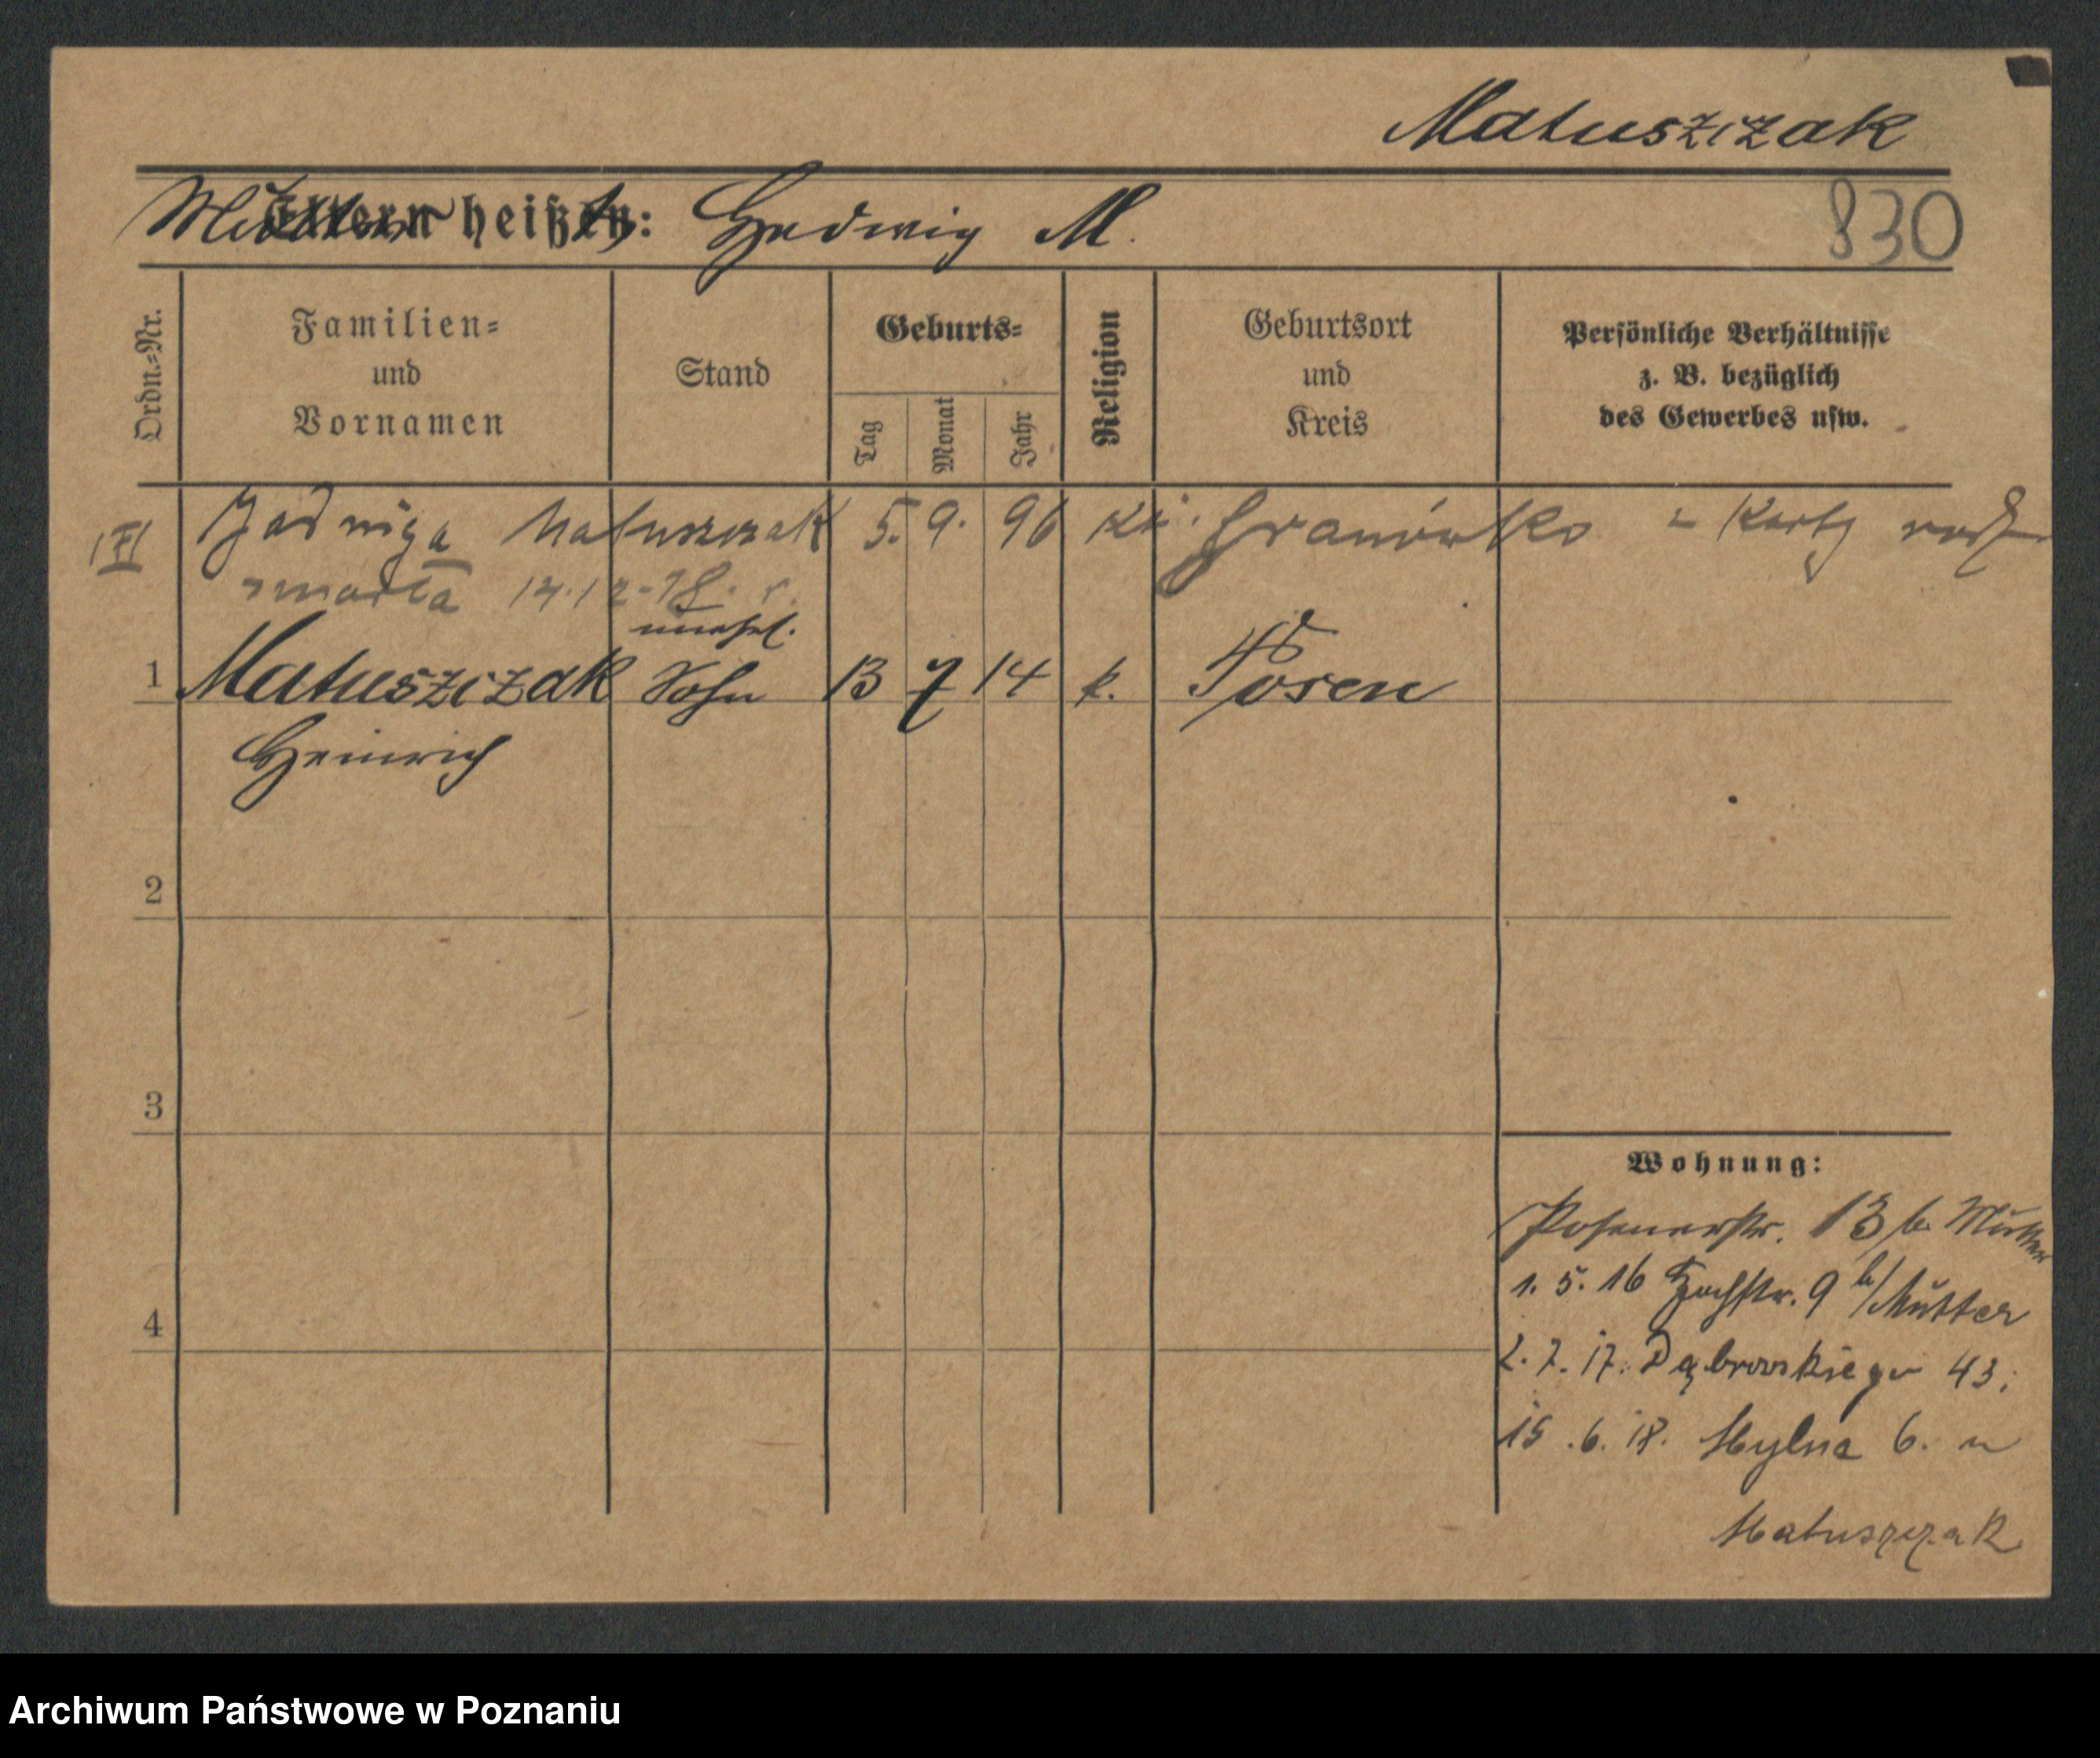 Matuszczak
Mutter heißt: Hedwig M.
830
Ordn.=Nr.
Familien=
und
Vornamen
Stand
Geburts=
Tag
Monat
Jahr
Religion
Geburtsort
und
Kreis
Persönliche Verhältnisse
z. B. bezüglich
des Gewerbes usw.
Jadwiga Matuszczak 5. 9. 96 kt. Granówko z karty rodz.
zmarła 14.12.18. r.
unehel.
1 Matuszczak Sohn 13 7 14 k. Posen
Heinrich
2
3
4
Wohnung:
Posenerstr. 13 b. Mutter
1. 5. 16 Hochstr. 9 b/Mutter
2. 7. 17. Dąbrowskiego 43;
15. 6. 18. Mylna 6. u
Matuszczak
Archiwum Państwowe w Poznaniu